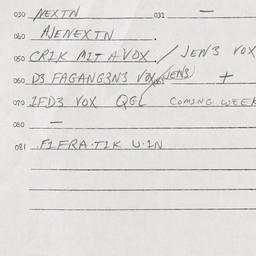 030 NEXTN 031 —
040 AJENEXTN .
050 CRIK MIT A VOX. / JEN3 VOX
060 D3 FAGANG3N3 VOX (JEN3) +
070 IFD3 VOX QGL COMING WEEK
080 —
081 .F1FRA.TIK U.IN